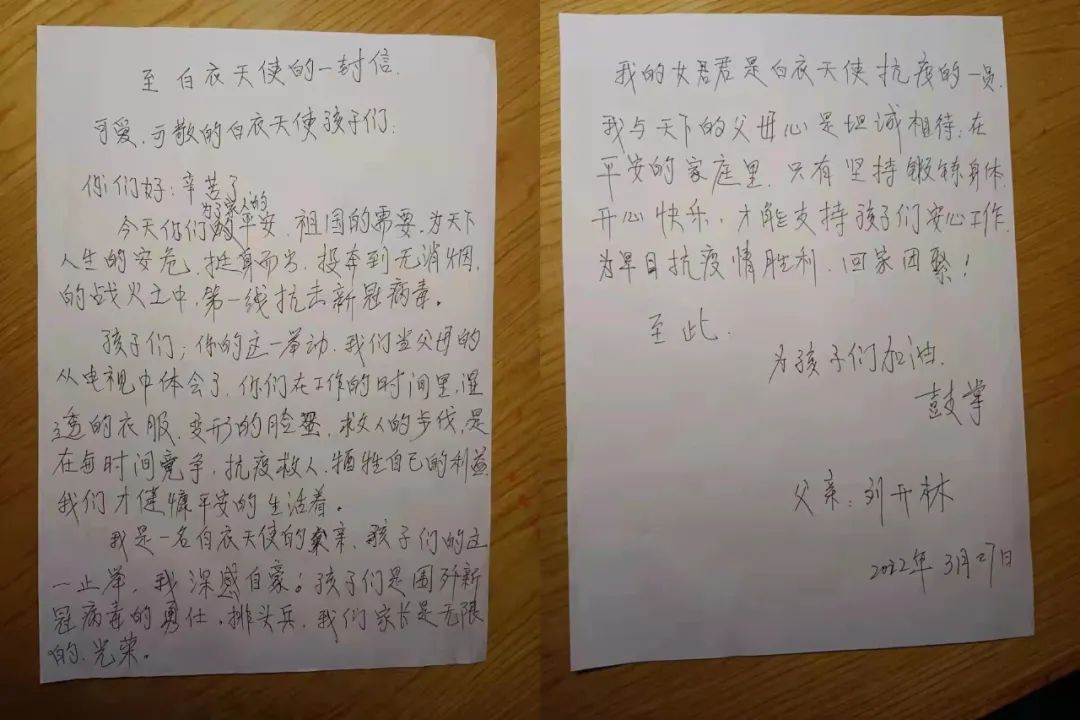 至白衣天使的一封信.
可爱.可敬的白衣天使孩子们:
你们好:辛苦了
为了家人的
今天你们的平安.祖国的需要,为天下
人生的安危,挺身而出.投奔到无消烟,
的战火之中,第一线抗击新冠病毒。
孩子们;你的这一举动.我们当父母的
从电视中体会了.你们在工作的时间里,湿
透的衣服.变形的脸蛋,救人的步伐,是
在每时间竞争,抗疫救人.牺牲自己的利益
我们才健慷平安的生活着。
我是一名白衣天使的父亲,孩子们的这
一止举,我深感自豪。孩子们是围歼新
冠病毒的勇仕,排头兵,我们家长是无限
的.光荣。
我的女君君是白衣天使抗疫的一员.
我与天下的父母心是坦诚相待;在
平安的家庭里.只有坚持锻练身体
开心快乐,才能支持孩子们安心工作.
为早日抗疫情胜利.回家团聚!
至此.
为孩子们加油.
鼓掌
父亲:刘开林
2022年3月27日